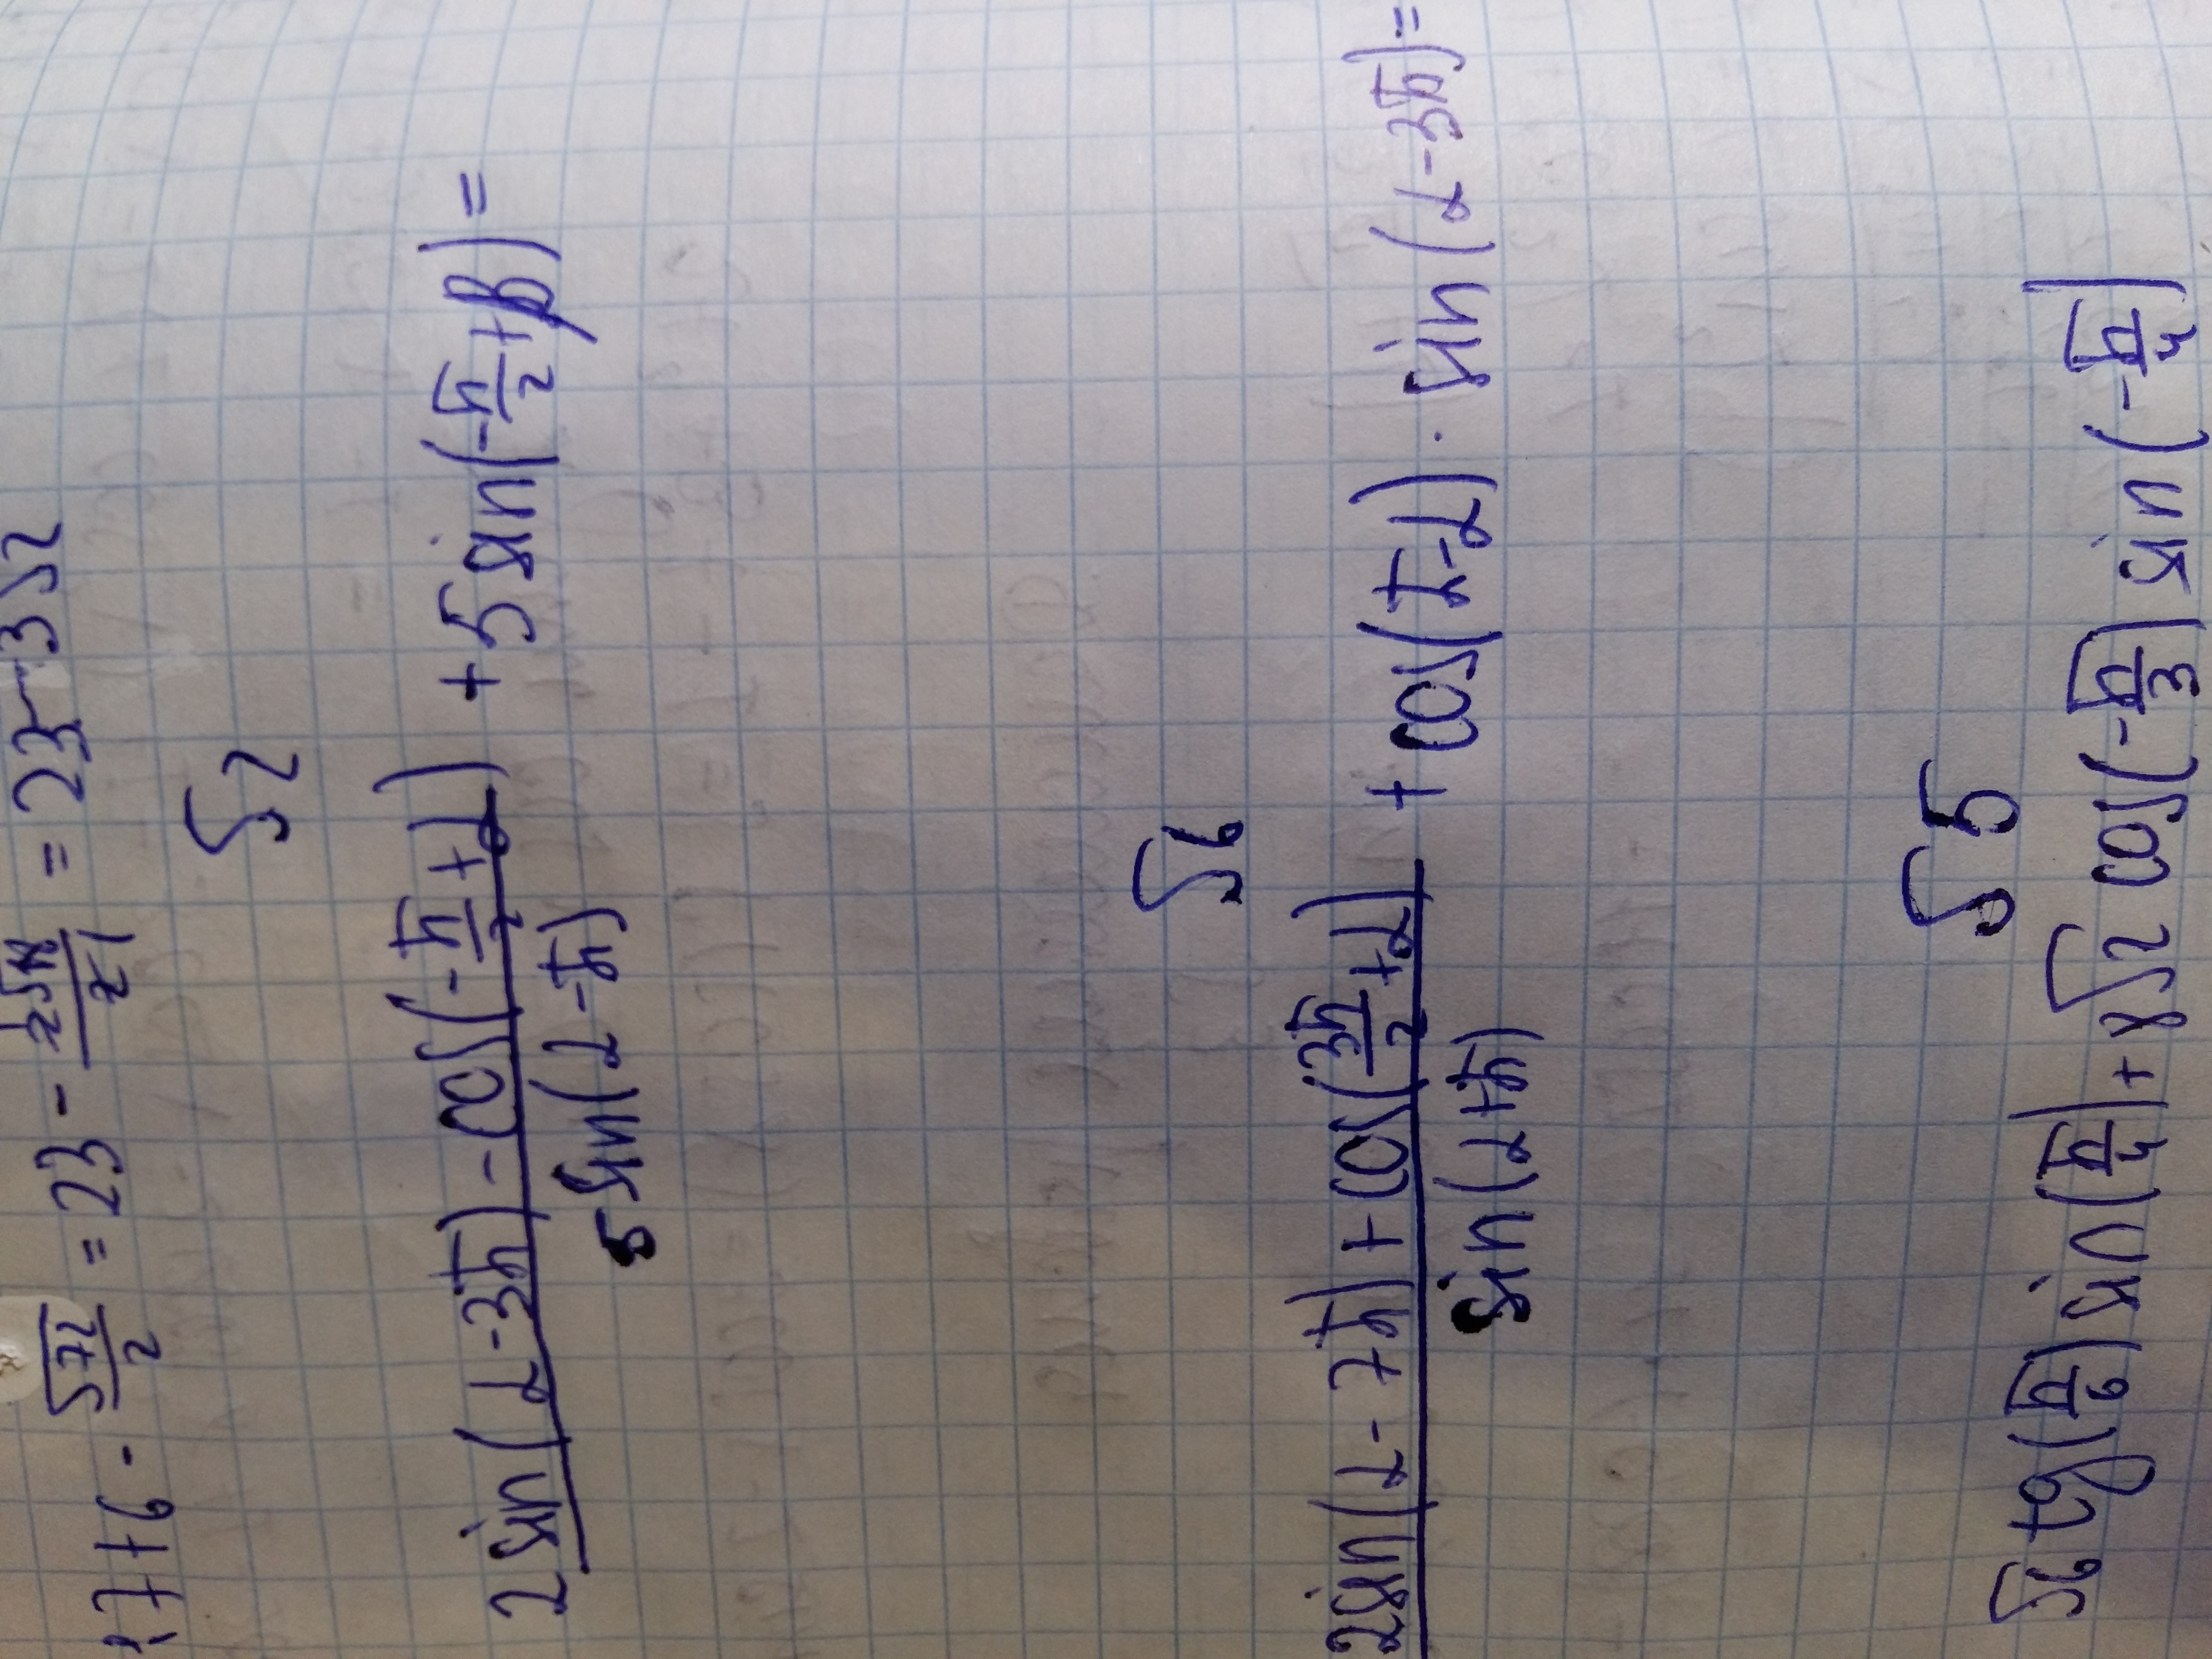 17+6 - √72/2 = 23 - 2√18/2 = 23 - 3√2
√2
2 sin(α-3π) - cos(-π/2+α) + 5 sin(-π/2+β) =
5 sin(α-π)
√6
2sin(α-7π) + cos(3π/2+α) + cos(π-α) · sin(α-3π) =
sin(α+π)
√5
√6 tg(π/6) sin(π/4) + 8√2 cos(-π/3) sin(-π/4)